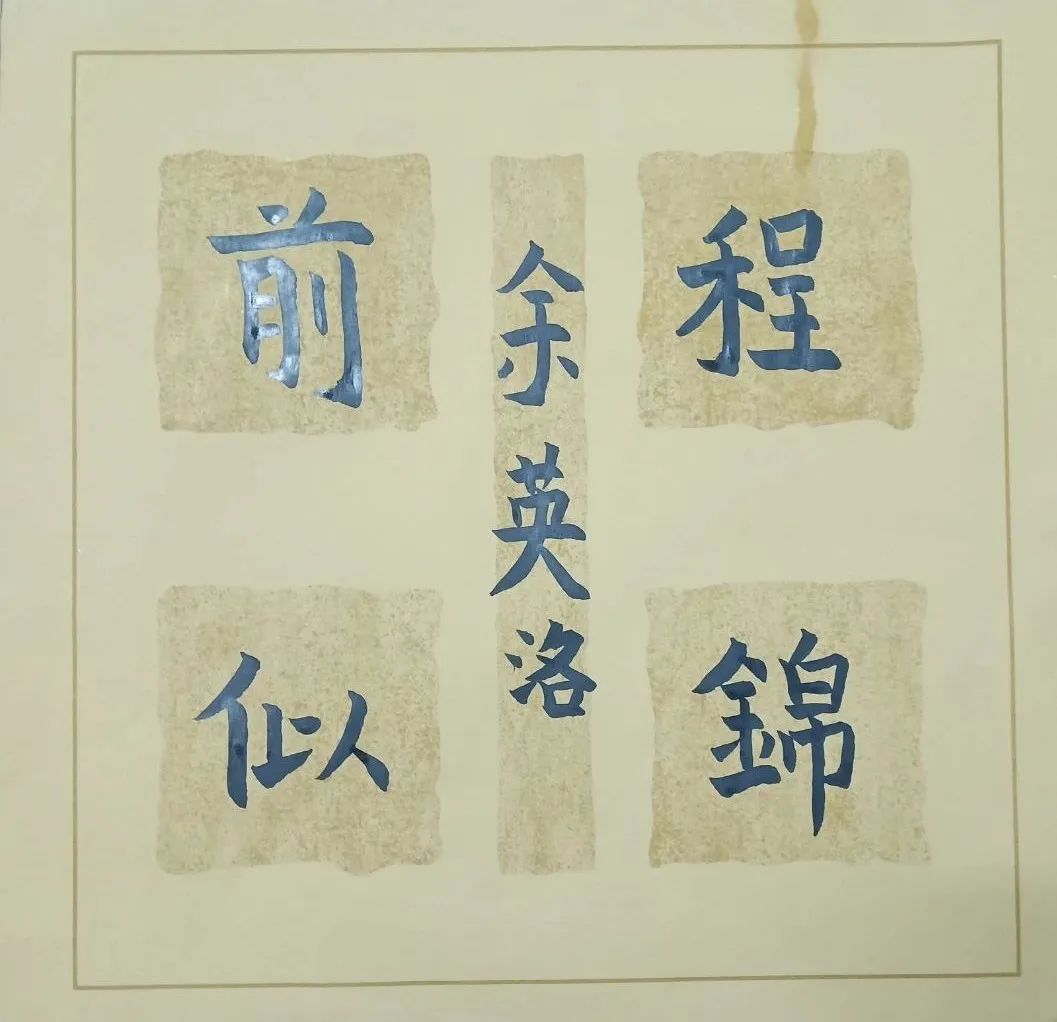 前程
似錦
余英洛